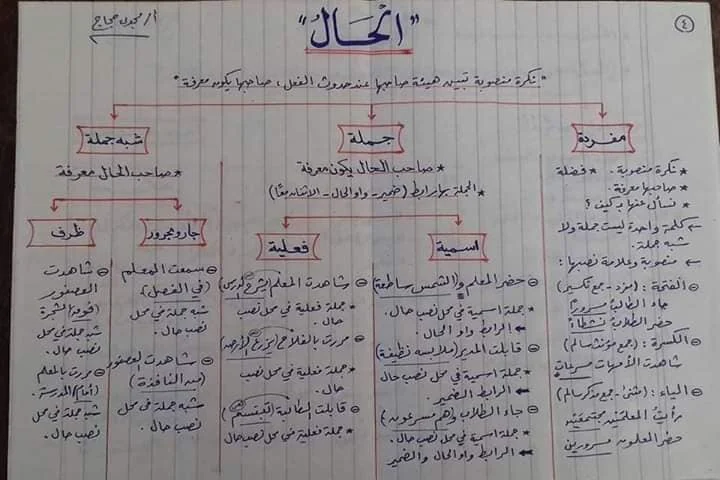 ٤
"الْحَالُ"
أ/مجدي حجاج
" نكرة منصوبة تبين هيئة صاحبها عند حدوث الفعل ، صاحبها يكون معرفة "
مفردة
* نكرة منصوبة . * فضلة
* صاحبها معرفة .
* نسأل عنها بـ كيف ؟
← كلمة واحدة ليست جملة ولا
شبه جملة .
← منصوبة وعلامة نصبها :
⊖ الفتحة : (مفرد - جمع تكسير)
جاء الطالب مسرورًا
حضر الطلاب نشطاءً
⊖ الكسرة : (جمع مؤنث سالم)
شاهدت الأمهات مسرعاتٍ
⊖ الياء : (مثنى - جمع مذكر سالم)
رأيت المعلمَين مجتمعَين
حضر المعلمون مسرورين
جملة
* صاحب الحال يكون معرفة
* الجملة بها رابط (ضمير - واو الحال - الاثنان معًا)
اسمية
⊖ حضر المعلم (والشمس ساطعة)
* جملة اسمية في محل نصب حال .
← الرابط واو الحال .
⊖ قابلت المدير (ملابسه نظيفة)
* جملة اسمية في محل نصب حال
← الرابط الضمير .
⊖ جاء الطلاب (وهم مسرعون)
* جملة اسمية في محل نصب حال .
← الرابط واو الحال والضمير
فعلية
⊖ شاهدت المعلم (يشرح الدرس)
* جملة فعلية في محل نصب
حال .
⊖ مررت بالفلاح (يزرع الأرض)
* جملة فعلية في محل نصب
حال .
⊖ قابلت الطالبة (تبتسم)
* جملة فعلية في محل نصب حال
شبه جملة
* صاحب الحال معرفة
جار ومجرور
⊖ سمعت المعلم
(في الفصل)
شبه جملة في محل
نصب حال .
⊖ شاهدت العصفور
(من النافذة)
* شبه جملة في محل
نصب حال .
ظرف
⊖ شاهدت
العصفور
(فوق الشجرة)
شبه جملة في محل
نصب حال .
⊖ مررت بالمعلم
(أمام) المدرسة .
شبه جملة في محل
نصب حال .